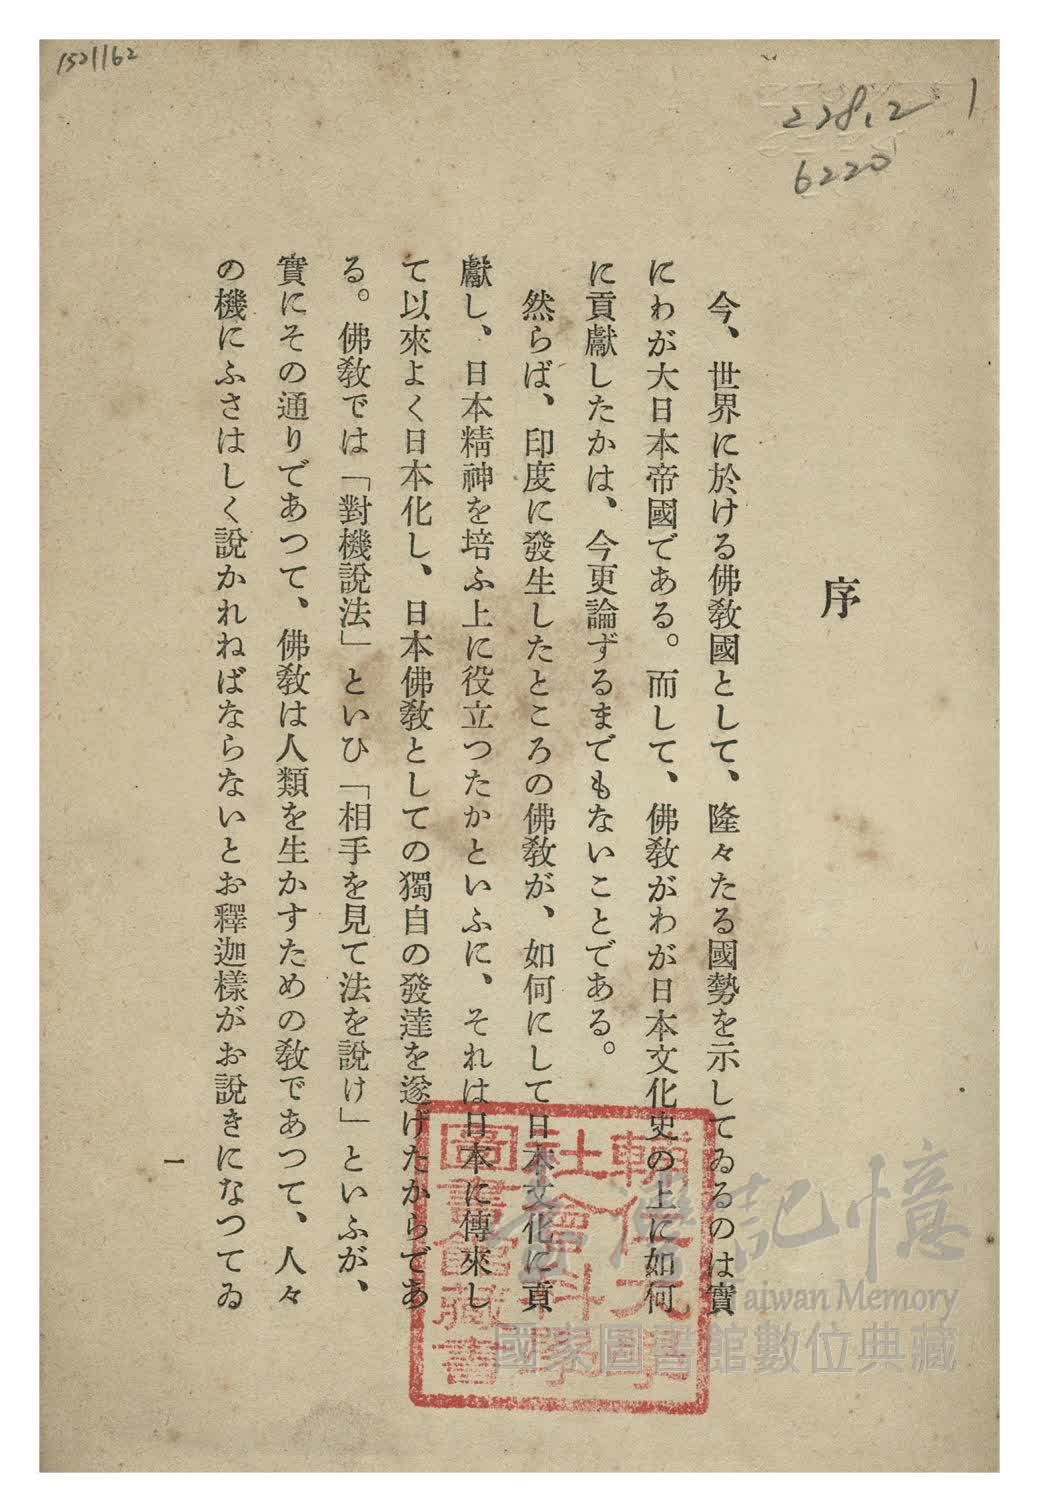 1521162
228.2 1
6220
序
今、世界に於ける佛教國として、隆々たる國勢を示してゐるのは實
にわが大日本帝國である。而して、佛教がわが日本文化史の上に如何
に貢獻したかは、今更論ずるまでもないことである。
然らば、印度に發生したところの佛教が、如何にして日本文化に貢
獻し、日本精神を培ふ上に役立つたかといふに、それは日本に傳來し
て以來よく日本化し、日本佛教としての獨自の發達を遂げたからであ
る。佛教では「對機說法」といひ「相手を見て法を說け」といふが、
實にその通りであつて、佛教は人類を生かすための教であつて、人々
の機にふさはしく說かれねばならないとお釋迦樣がお說きになつてゐ
一
輔仁大學
社會科學
圖書館藏書
臺灣記憶
Taiwan Memory
國家圖書館數位典藏